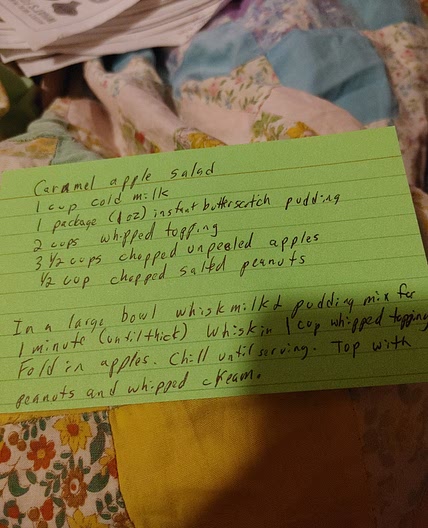 Caramel apple salad
1 cup cold milk
1 package (1oz) instant butterscotch pudding
2 cups whipped topping
3 1/2 cups chopped unpealed apples
1/2 cup chopped salted peanuts
In a large bowl whisk milk & pudding mix for
1 minute (until thick) Whisk in 1 cup whipped topping
Fold in apples. Chill until serving. Top with
peanuts and whipped cream.